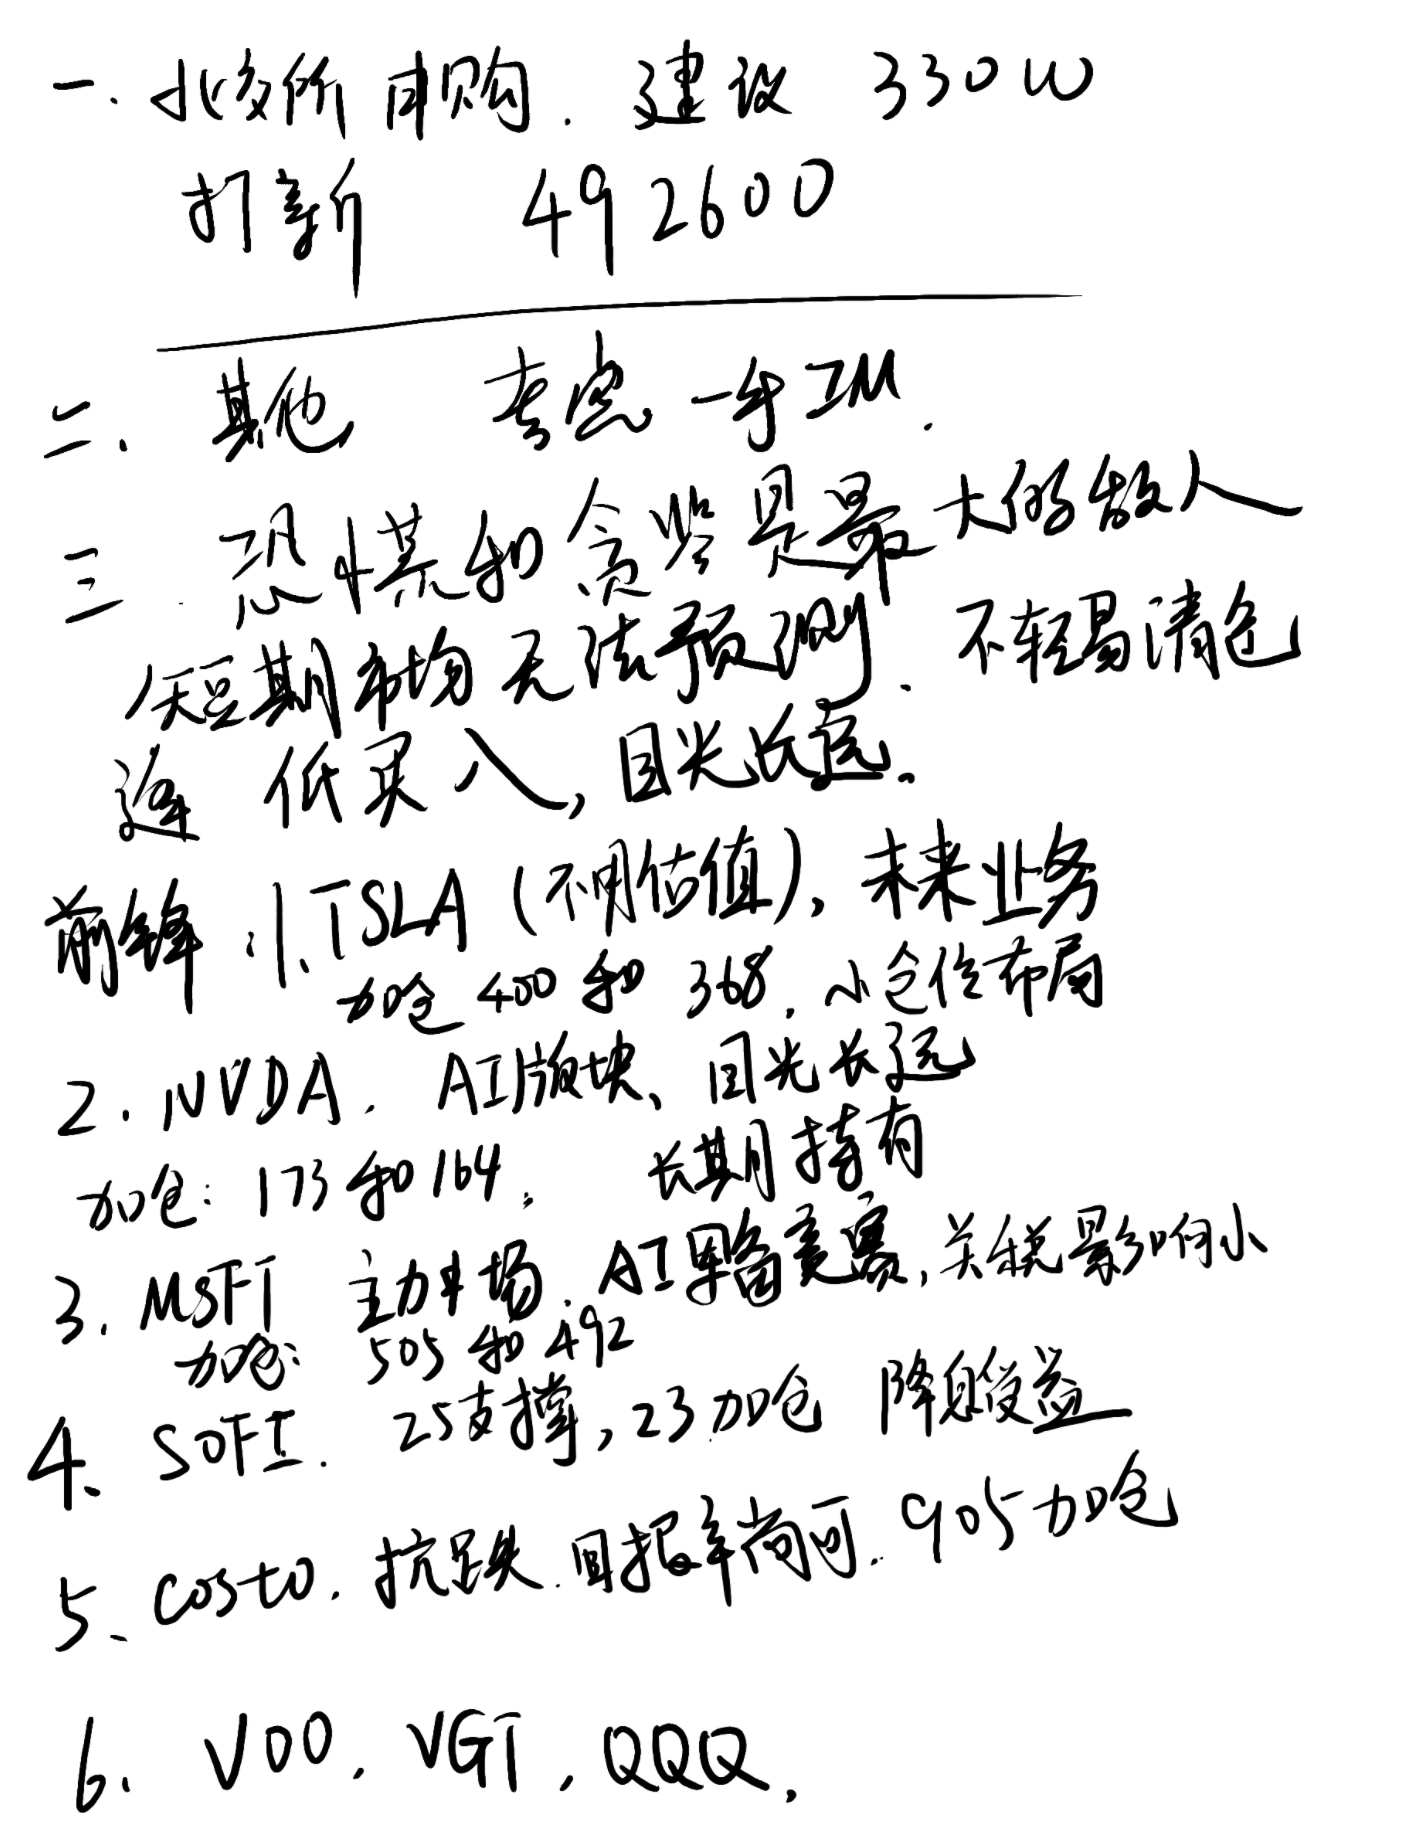 一. 北交所申购. 建议 330W
打新 492600
二. 其他 考虑一手IM.
三. 恐慌和贪婪是最大的敌人
短期市场无法预测. 不轻易清仓
逢低买入, 目光长远.
前锋: 1、TSLA (不用估值), 未来业务
加仓 400 和 368, 小仓位布局
2. NVDA. AI版块、目光长远
加仓: 173和164, 长期持有
3. MSFT 主力中场. AI军备竞赛, 关税影响小
加仓: 505 和 492
4、SOFI. 25支撑, 23加仓 降息受益
5、costo. 抗跌. 回报率尚可. 905加仓
6. VOO. VGT, QQQ,